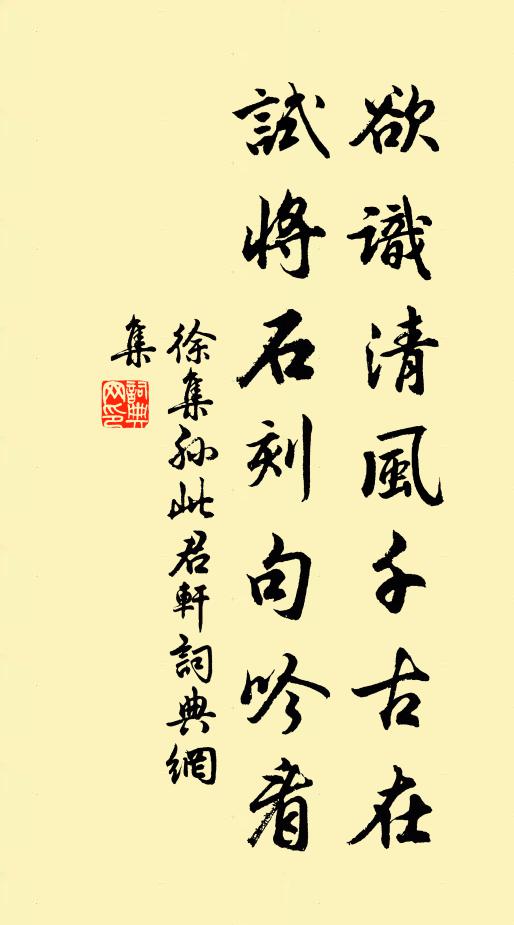 欲識清風千古在
試將石刻句吟看
徐集孫此君軒詞典網
集
詞典网印